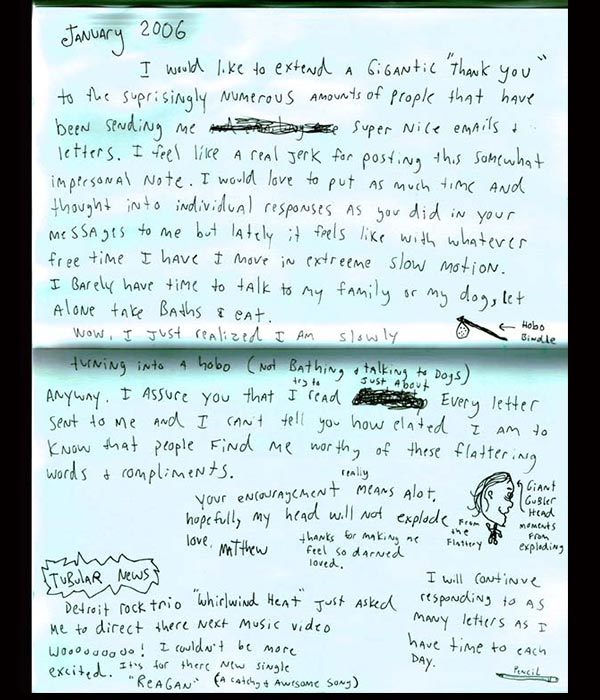 January 2006
I would like to extend a Gigantic "thank you"
to the suprisingly numerous amounts of people that have
been sending me super nice emails +
letters. I feel like a real jerk for posting this somewhat
impersonal note. I would love to put as much time and
thought into individual responses as you did in your
messages to me but lately it feels like with whatever
free time I have I move in extreeme slow motion.
I Barely have time to talk to my family or my dog, let
Alone take Baths & eat.
← Hobo
Bindle
Wow, I just realized I am slowly
turning into a hobo (not Bathing + talking to Dogs)
Anyway. I assure you that I try to read just about Every letter
sent to me and I can't tell you how elated I am to
know that people find me worthy of these flattering
words + compliments.
Your encouraygement really means alot.
hopefully, my head will not explode
From
the
Flattery
Giant
Gubler
Head
moments
From
exploding
love, Matthew
thanks for making me
feel so darned
loved.
Tubular News
Detroit rock trio "Whirlwind Heat" just asked
me to direct there next music video
Woooooooo! I couldn't be more
excited. It's for there new single
"Reagan" (A catchy & Awesome song)
I will continue
responding to as
many letters as I
have time to each
day.
Pencil